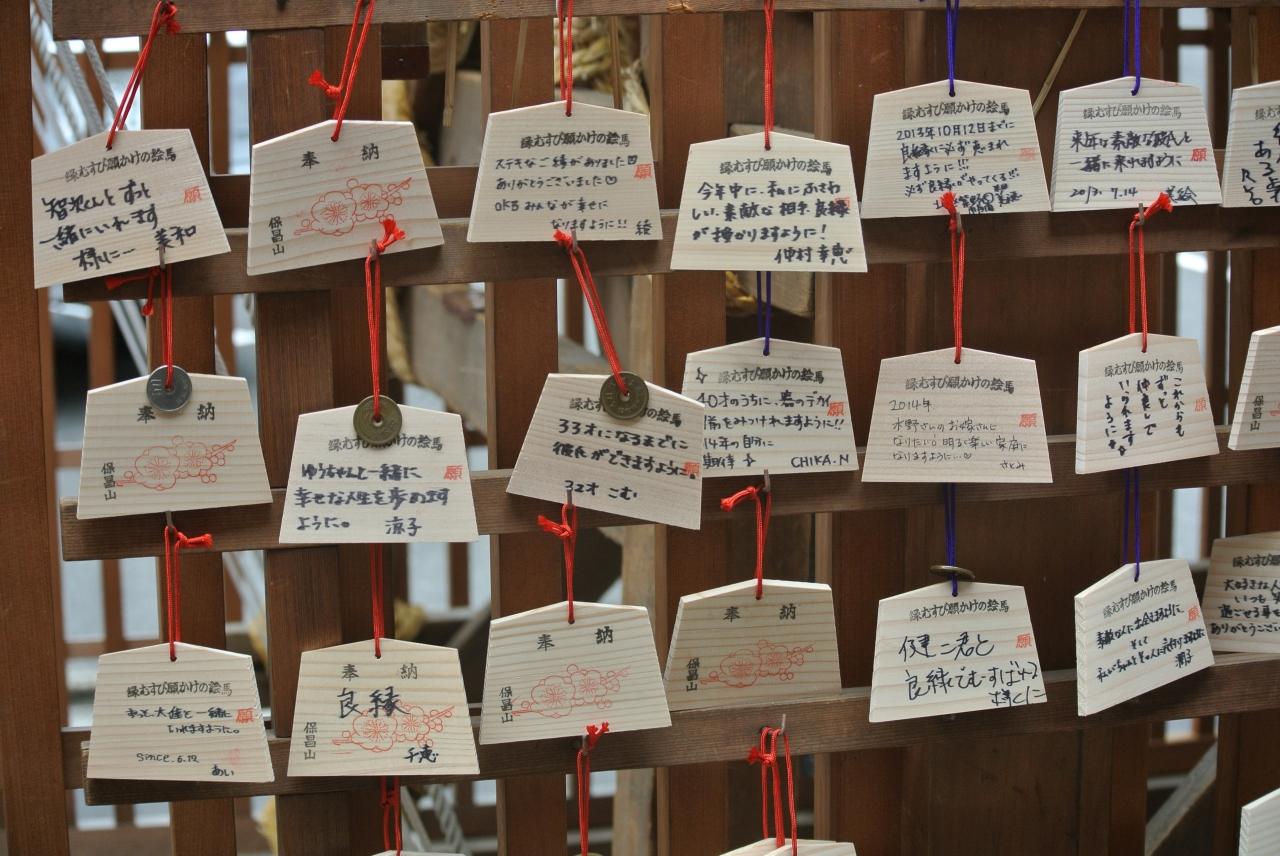 縁むすび願かけの絵馬
智次くんとずっと
一緒にいれます
様に… 美和
願
奉納
保昌山
縁むすび願かけの絵馬
ステキなご縁がありました♡
ありがとうございました♡
OKBみんなが幸せに
なりますように!! 綾
願
縁むすび願かけの絵馬
今年中に、私にふさわ
しい、素敵な相手、良縁
が授かりますように!
仲村幸恵
縁むすび願かけの絵馬
2013年10月12日までに
良縁に必ず恵まれ
ますように!!!
必ず良縁がやってくる!!!
願
縁むすび願かけの絵馬
来年は素敵な
一緒に来れますように
2013.7.14
願
奉納
保昌山
縁むすび願かけの絵馬
ゆうちゃんと一緒に
幸せな人生を歩めます
ように。 涼子
願
縁むすび願かけの絵馬
33才になるまでに
彼氏ができますように
32才 こむ
願
縁むすび願かけの絵馬
40才のうちに、春のデカイ
をみつけれますように!!
14年の自分に
期待 CHIKA.N
願
縁むすび願かけの絵馬
2014年
水野さんのお嫁さんに
なりたい! 明るく楽しい家庭に
なりますように…♡
さとみ
願
縁むすび願かけの絵馬
これからも
ずっと
仲良しで
いられます
ように
願
保昌山
縁むすび願かけの絵馬
ずっと、大佳と一緒に
いれますように。
since.6.12
あい
願
奉納
良縁
保昌山
千恵
奉納
保昌山
奉納
保昌山
縁むすび願かけの絵馬
健二君と
良縁でむすばれ
願
縁むすび願かけの絵馬
そして
願
縁むすび願かけの絵馬
大好きな人
いつも
過ごせる
ありがとう